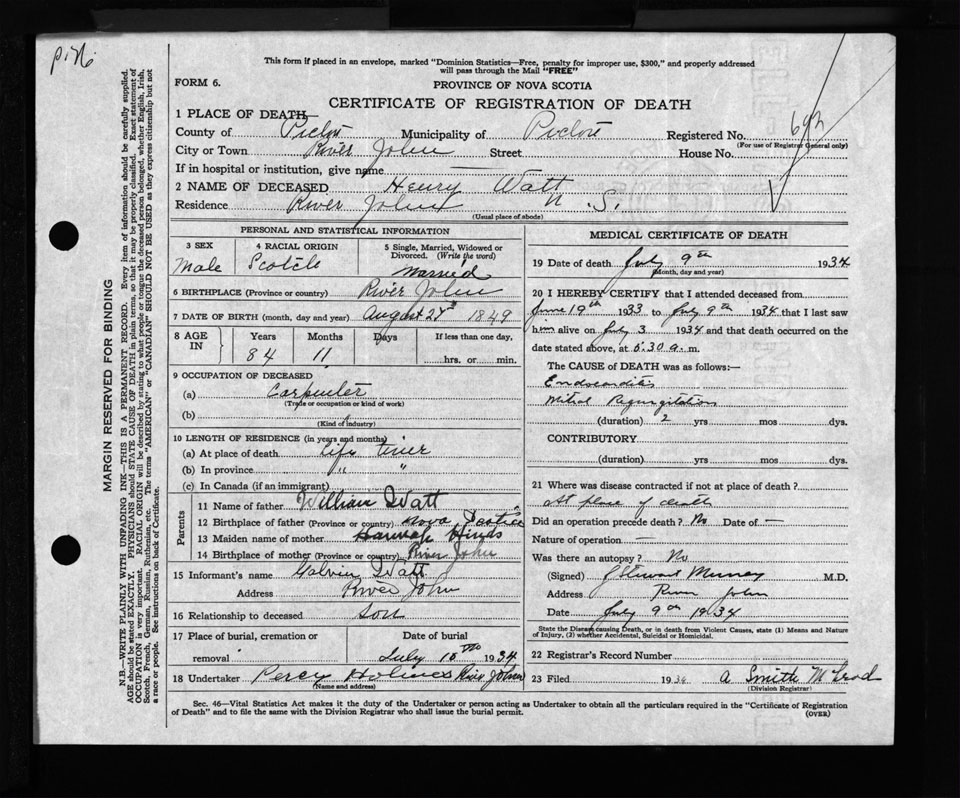 P. N.
This form if placed in an envelope, marked "Dominion Statistics—Free, penalty for improper use, $300," and properly addressed
will pass through the Mail "FREE"
FORM 6.
PROVINCE OF NOVA SCOTIA
CERTIFICATE OF REGISTRATION OF DEATH
1 PLACE OF DEATH—
County of Pictou Municipality of Pictou Registered No.
(For use of Registrar General only)
City or Town River John Street House No.
If in hospital or institution, give name
2 NAME OF DECEASED Henry Watt
Residence River John N. S.
(Usual place of abode)
MARGIN RESERVED FOR BINDING
N.B.—WRITE PLAINLY WITH UNFADING INK—THIS IS A PERMANENT RECORD. Every item of information should be carefully supplied.
AGE should be stated EXACTLY. PHYSICIANS should STATE CAUSE OF DEATH in plain terms, so that it may be properly classified. Exact statement of
OCCUPATION is very important. RACIAL ORIGIN will be described by stating to what people or tongue the deceased person belonged, whether English, Irish,
Scotch, French, German, Russian, Ruthenian, etc. The terms "AMERICAN" or "CANADIAN" SHOULD NOT BE USED as they express citizenship but not
a race or people. See instructions on back of Certificate.
PERSONAL AND STATISTICAL INFORMATION
3 SEX
Male
4 RACIAL ORIGIN
Scotch
5 Single, Married, Widowed or
Divorced. (Write the word)
Married
6 BIRTHPLACE (Province or country) River John
7 DATE OF BIRTH (month, day and year) August 1849
8 AGE IN
Years Months Days If less than one day,
84 11 hrs. or min.
9 OCCUPATION OF DECEASED
(a) Carpenter
(Trade or occupation or kind of work)
(b)
(Kind of industry)
10 LENGTH OF RESIDENCE (in years and months)
(a) At place of death life time
(b) In province " "
(c) In Canada (if an immigrant)
Parents
11 Name of father William Watt
12 Birthplace of father (Province or country) Nova Scotia
13 Maiden name of mother Hannah Hinds
14 Birthplace of mother (Province or country) River John
15 Informant's name Watt
Address River John
16 Relationship to deceased son
17 Place of burial, cremation or
removal
Date of burial
July 1934
18 Undertaker Percy Holmes River John
(Name and address)
MEDICAL CERTIFICATE OF DEATH
19 Date of death July 9th 1934
(Month, day and year)
20 I HEREBY CERTIFY that I attended deceased from
June 19th 1933 to July 9th 1934 that I last saw
him alive on July 3 1934 and that death occurred on the
date stated above, at 5:30 a. m.
The CAUSE OF DEATH was as follows:—
Endocarditis
Mitral Regurgitation
(duration) 2 yrs mos dys.
CONTRIBUTORY
(duration) yrs mos dys.
21 Where was disease contracted if not at place of death?
At place of death
Did an operation precede death? No Date of —
Nature of operation —
Was there an autopsy? No
(Signed) J Stewart Murray M.D.
Address River John
Date July 9th 1934
State the Disease causing Death, or in death from Violent Causes, state (1) Means and Nature
of Injury, (2) whether Accidental, Suicidal or Homicidal.
22 Registrar's Record Number
23 Filed 193 A Smith McLeod
(Division Registrar)
Sec. 46—Vital Statistics Act makes it duty of the Undertaker or person acting as Undertaker to obtain all the particulars required in the "Certificate of Registration
of Death" and to file the same with the Division Registrar who shall issue the burial permit.
(OVER)